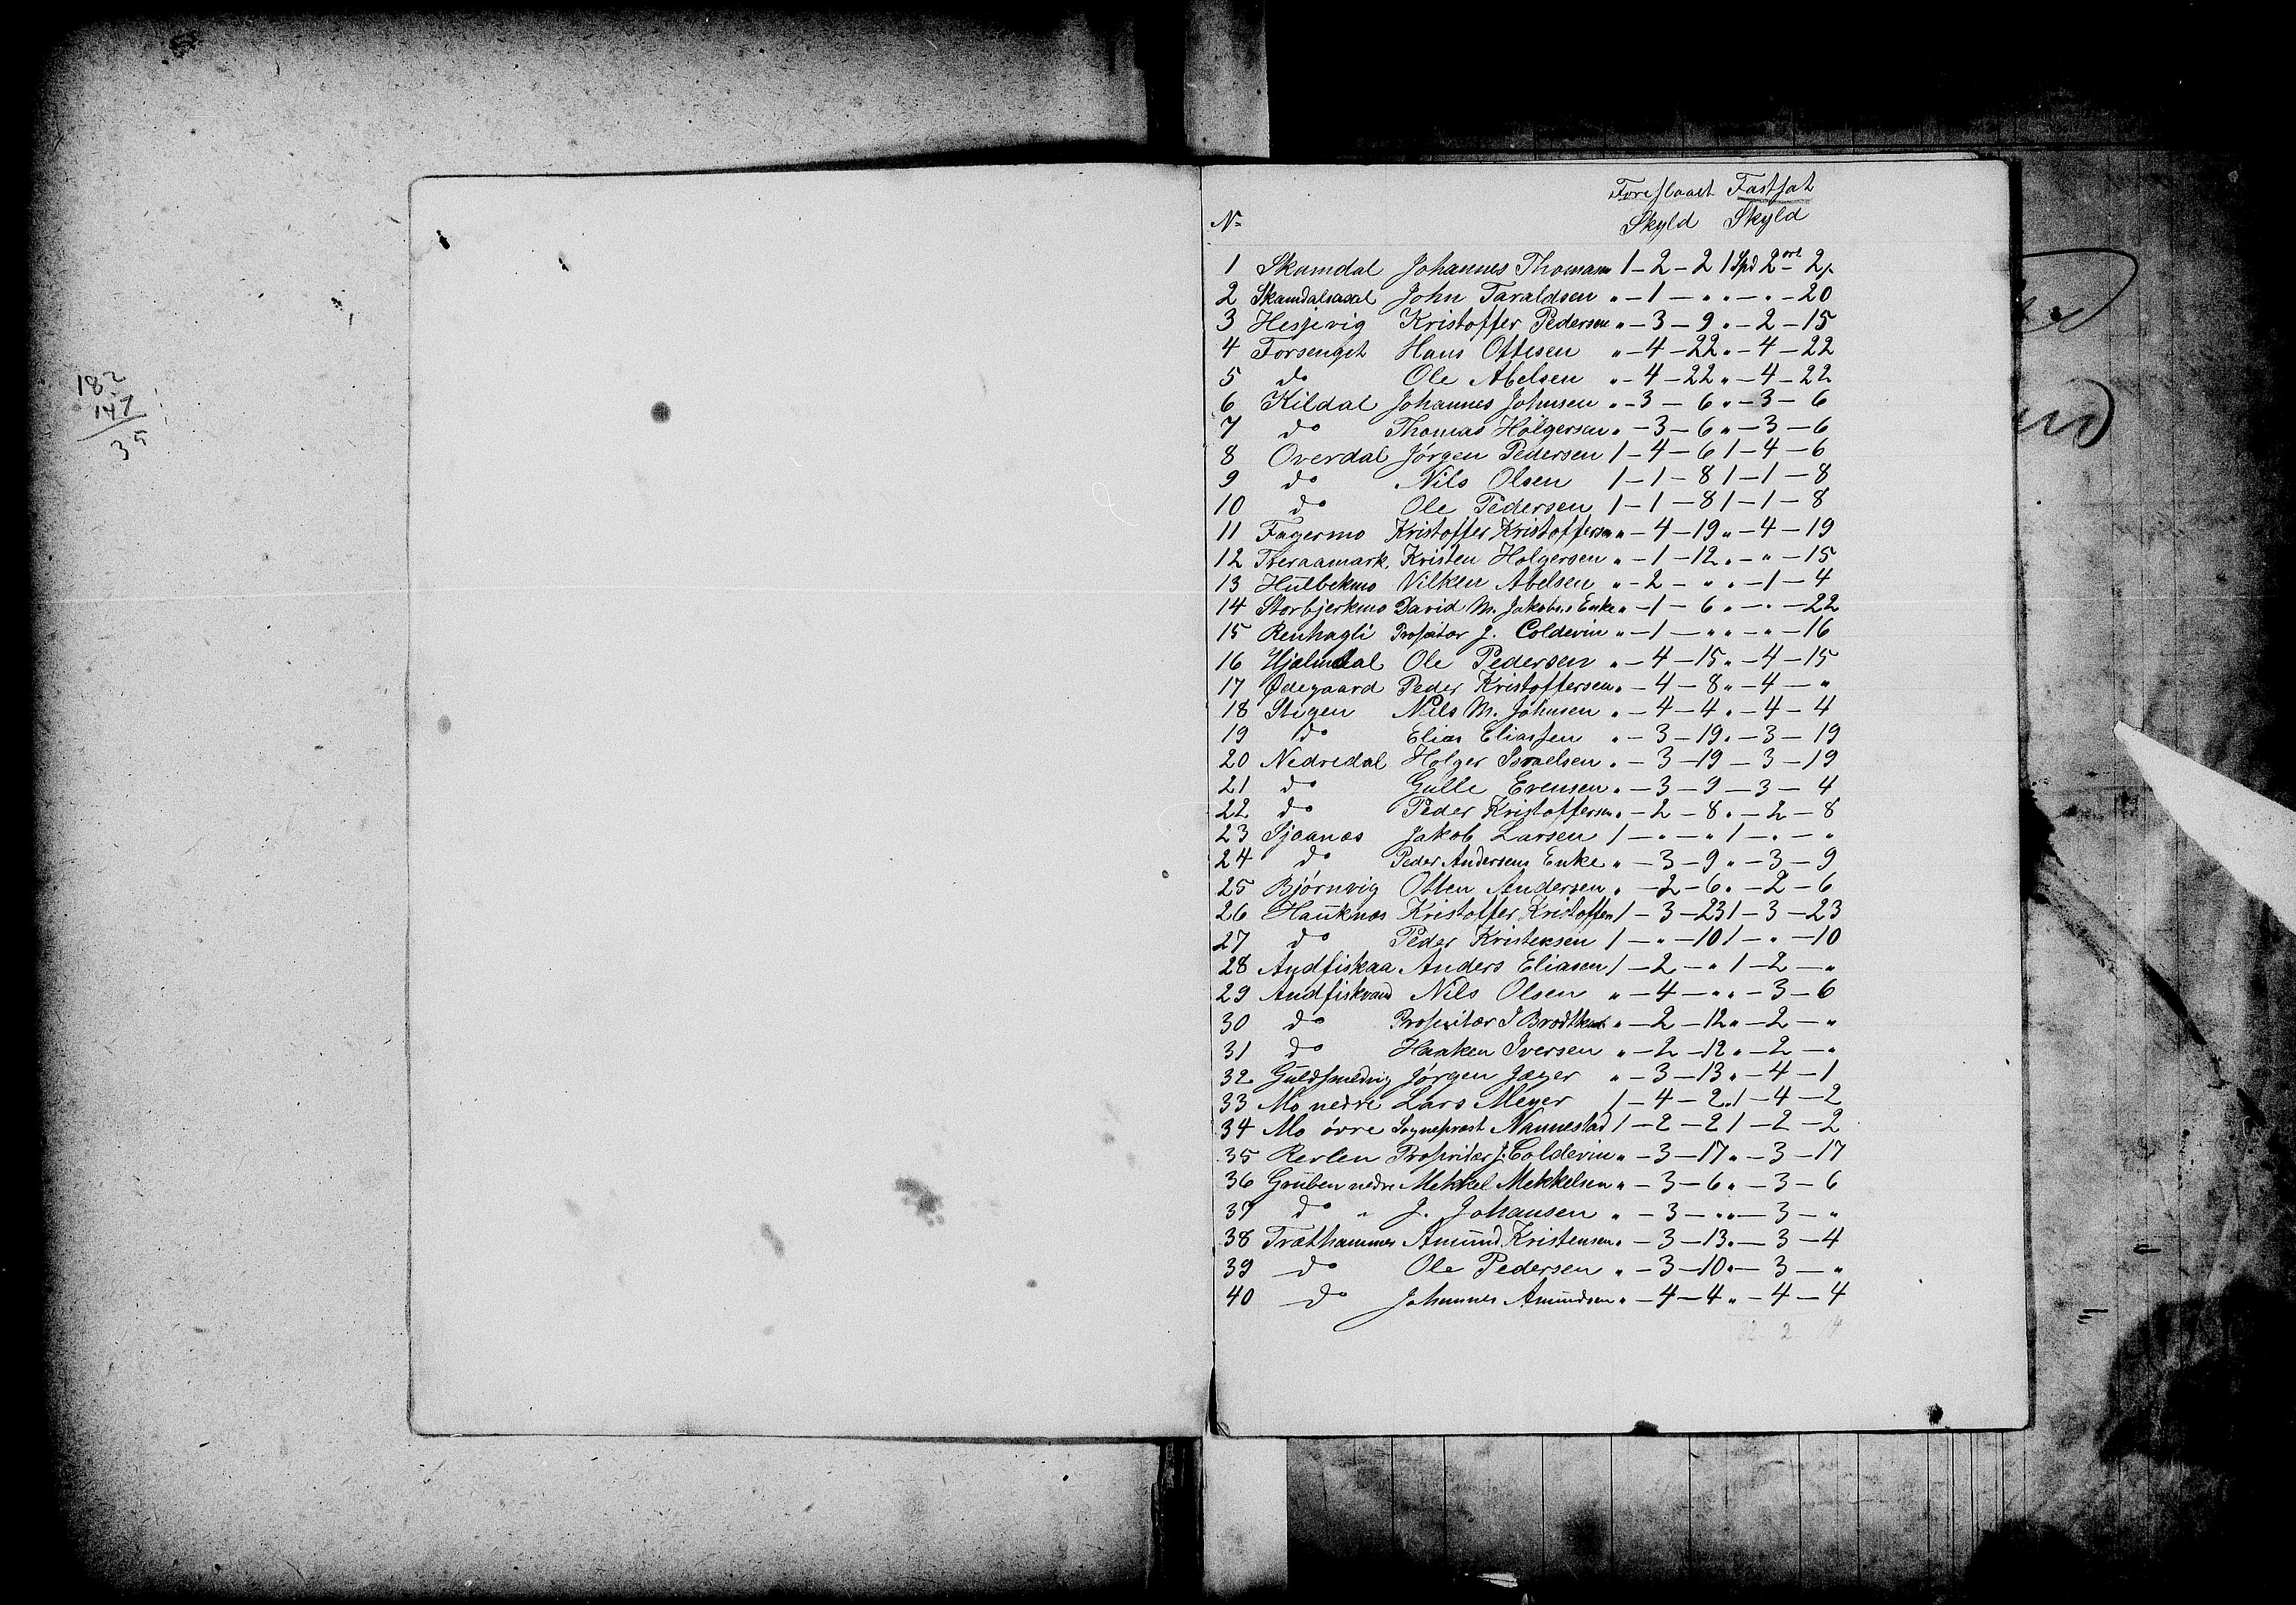 182
147
35
Foreslaaet Fastsat
No Skyld Skyld
1 Skamdal Johannes Thomasen 1 - 2 - 2 1 Spd 2 ort 2
2 Skamdalsasal John Taraldsen " - 1 - " " - " - 20
3 Hesjevig Kristoffer Pedersen " - 3 - 9 " - 2 - 15
4 Forsenget Hans Ottesen " - 4 - 22 " - 4 - 22
5 do Ole Abelsen " - 4 - 22 " - 4 - 22
6 Kildal Johannes Johnsen " - 3 - 6 " - 3 - 6
7 do Thomas Holgersen " - 3 - 6 " - 3 - 6
8 Overdal Jørgen Pedersen 1 - 4 - 6 1 - 4 - 6
9 do Nils Olsen 1 - 1 - 8 1 - 1 - 8
10 do Ole Pedersen 1 - 1 - 8 1 - 1 - 8
11 Fagermo Kristoffer Kristoffersen " - 4 - 19 " - 4 - 19
12 Tveraamark Kristen Holgersen " - 1 - 12 " - " - 15
13 Hulbekmo Vilken Abelsen " - 2 - " " - 1 - 4
14 Storbjerkmo David M. Jakobs. Enke " - 1 - 6 " - " - 22
15 Renhagli Propritær J. Coldevin " - 1 - " " - " - 16
16 Hjelmdal Ole Pedersen " - 4 - 15 " - 4 - 15
17 Ødegaard Peder Kristoffersen " - 4 - 8 " - 4 - "
18 Stigen Nils M. Johnsen " - 4 - 4 " - 4 - 4
19 do Elias Eliassen " - 3 - 19 " - 3 - 19
20 Nedredal Holger Israelsen " - 3 - 19 - 3 - 19
21 do Gulle Evensen " - 3 - 9 - 3 - 4
22 do Peder Kristoffersen " - 2 - 8 " - 2 - 8
23 Sjaanæs Jakob Larsen 1 - " - " 1 - " - "
24 do Peder Andersens Enke " - 3 - 9 " - 3 - 9
25 Bjørnvig Otten Andersen " - 2 - 6 " - 2 - 6
26 Hauknæs Kristoffer Kristoffers 1 - 3 - 23 1 - 3 - 23
27 do Peder Kristensen 1 - " - 10 1 - " - 10
28 Andfiskaa Anders Eliasen 1 - 2 - " 1 - 2 - "
29 Andfiskvand Nils Olsen " - 4 - " " - 3 - 6
30 do Propritær J Brodtkorb " - 2 - 12 " - 2 - "
31 do Haaken Iversen " - 2 - 12 " - 2 - "
32 Guldsmedvig Jørgen Jæger " - 3 - 13 " - 4 - 1
33 Mo nedre Lars Meyer 1 - 4 - 2 1 - 4 - 2
34 Mo øvre Sognepræst Nannestad 1 - 2 - 2 1 - 2 - 2
35 Revlen Propritær J. Coldevin " - 3 - 17 " - 3 - 17
36 Gruben nedre Mekkel Mekkelsen " - 3 - 6 " - 3 - 6
37 do " J. Johansen " - 3 - " " - 3 - "
38 Træthammer Amund Kristensen " - 3 - 13 " - 3 - 4
39 do Ole Pedersen " - 3 - 10 " - 3 - "
40 do Johannes Amundsen " - 4 - 4 " - 4 - 4